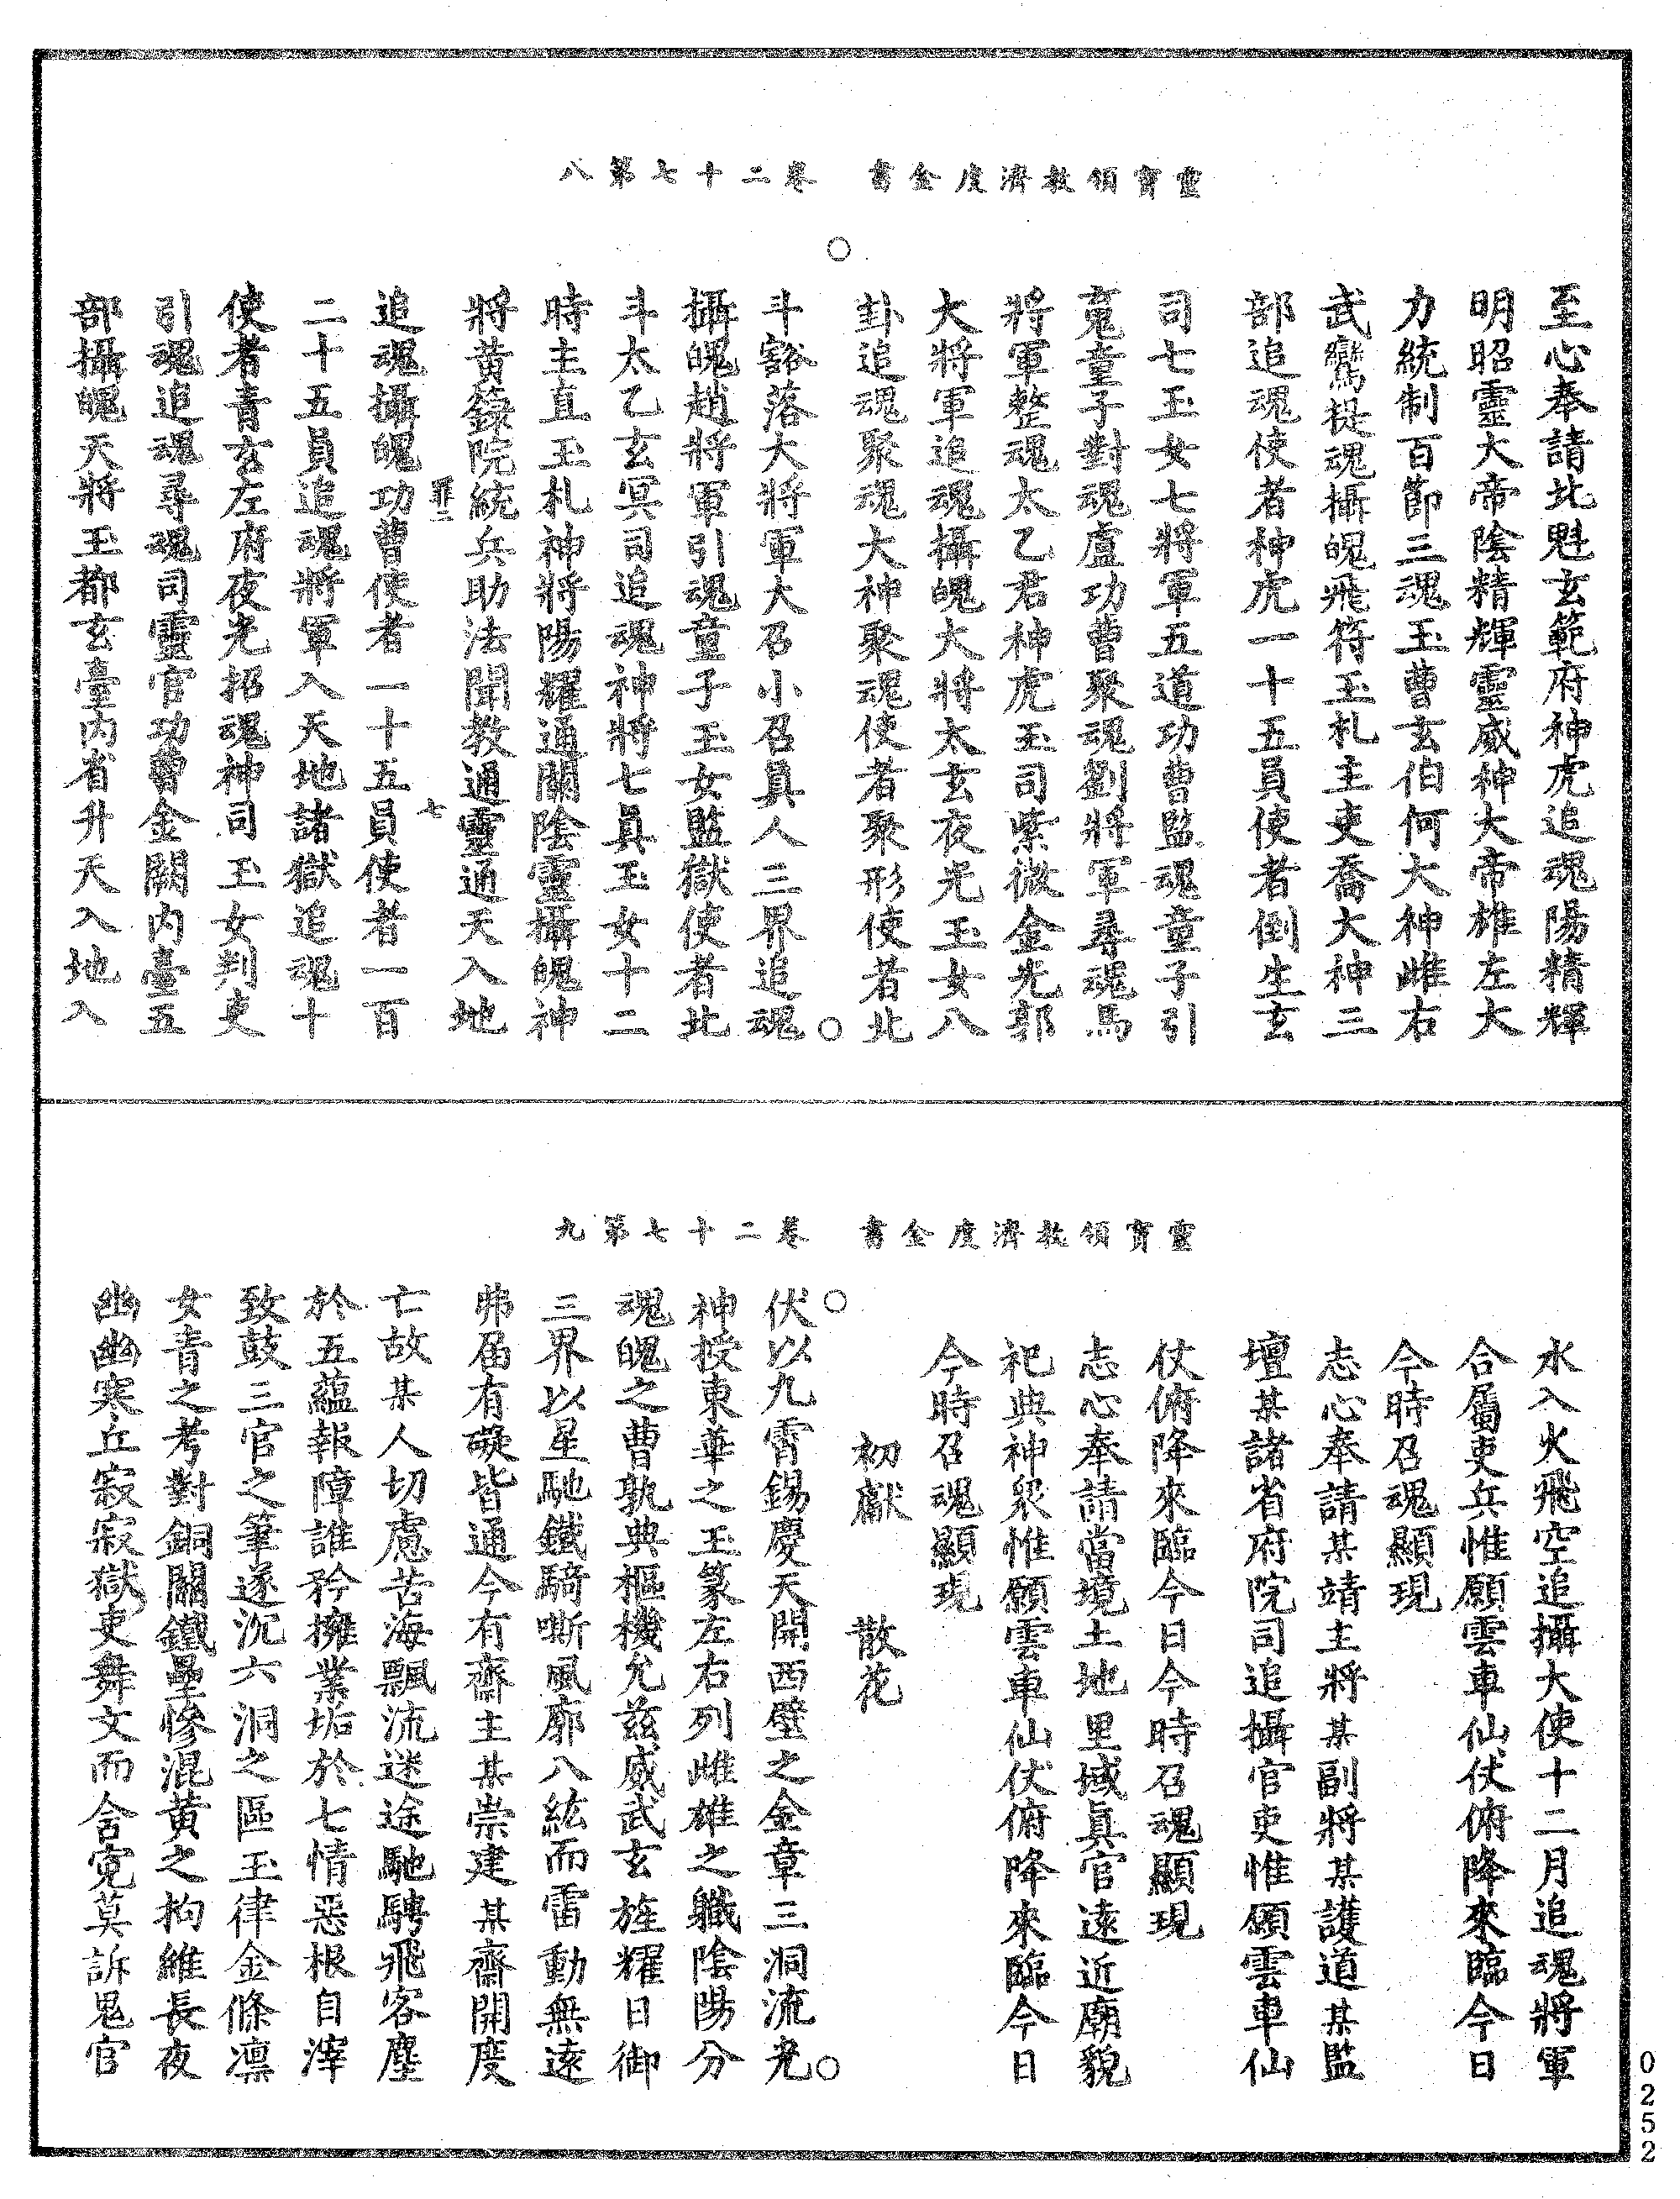 靈寶領教濟度金書　卷二十七第八
至心奉請北魁玄範府神虎追魂陽精輝
明昭靈大帝陰精輝靈威神大帝雄左大
力統制百節三魂玉曹玄伯何大神雌右
武鸞掟魂攝魄飛符玉札主吏喬大神三
部追魂使者神虎一十五員使者倒生玄
司七玉女七將軍五道功曹監魂童子引
䰟童子對魂盧功曹聚魂劉將軍尋魂馬
將軍整魂太乙君神虎玉司紫微金光郭
大將軍追魂攝魄大將太玄夜光玉女八
卦追魂聚魂大神聚魂使者聚形使者北
斗豁落大將軍大召小召真人三界追魂
攝魄趙將軍引魂童子玉女監獄使者北
斗太乙玄冥司追魂神將七真玉女十二
時主直玉札神將陽耀通關陰靈攝魄神
將黃籙院統兵助法聞教通靈通天入地
追魂攝魄功曹使者一十五員使者一百
二十五員追魂將軍入天地諸獄追魂十
使者青玄左府夜光招魂神司玉女判吏
引魂追魂尋魂司靈官功曹金闕內臺五
部攝魄天將玉都玄臺內省升天入地入
靈寶領教濟度金書　卷二十七第九
水入火飛空追攝大使十二月追魂將軍
合屬吏兵惟願雲車仙仗俯降來臨今日
今時召魂顯現
志心奉請某靖主將某副將某護道某監
壇某諸省府院司追攝官吏惟願雲車仙
仗俯降來臨今日今時召魂顯現
志心奉請當境土地里域真官遠近廟貌
祀典神眾惟願雲車仙仗俯降來臨今日
今時召魂顯現
初獻　散花
伏以九霄錫慶天開西壁之金章三洞流光
神授東華之玉篆左右列雌雄之職陰陽分
魂魄之曹執典樞機允茲威武玄旌耀日御
三界以星馳鐵騎嘶風廓八紘而雷動無遠
弗屆有礙皆通今有齋主某崇建某齋開度
亡故某人切慮苦海飄流迷途馳騁飛客塵
於五蘊報障誰矜擁業垢於七情惡根自滓
致鼓三官之筆遂沉六洞之區玉律金條凛
女青之考對銅關鐵壘慘混黃之拘維長夜
幽幽寒丘寂寂獄吏舞文而含寃莫訴鬼官
七
0252